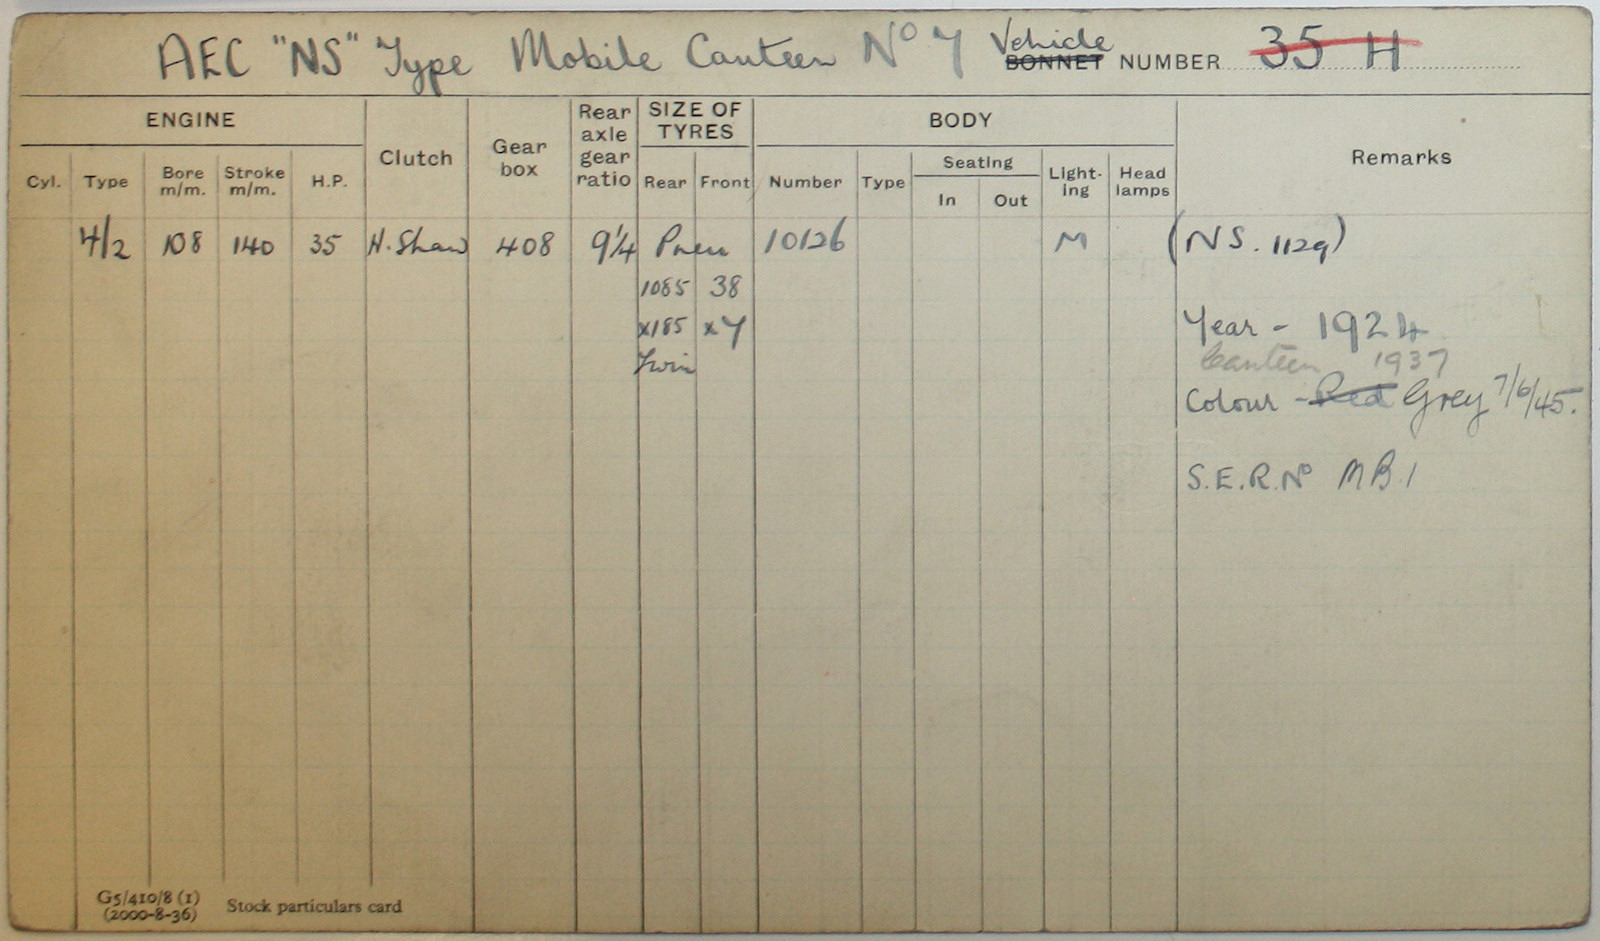 AEC "NS" Type Mobile Canteen No 7 Vehicle BONNET NUMBER 35 H
ENGINE
Clutch
Gear box
Rear axle gear ratio
SIZE OF TYRES
BODY
Remarks
Cyl. Type Bore m/m. Stroke m/m. H.P.
Rear Front
Number Type Seating In Out Light-ing Head lamps
4/2 108 140 35 H. Shaw 408 9¼ Pneu 10126 M (NS. 1129)
1085 38
x185 x7
Twin
Year - 1924
Canteen 1937
Colour - Red Grey 7/6/45.
S.E.R. No MB.1
G5/410/8 (1)
(2000-8-36) Stock particulars card